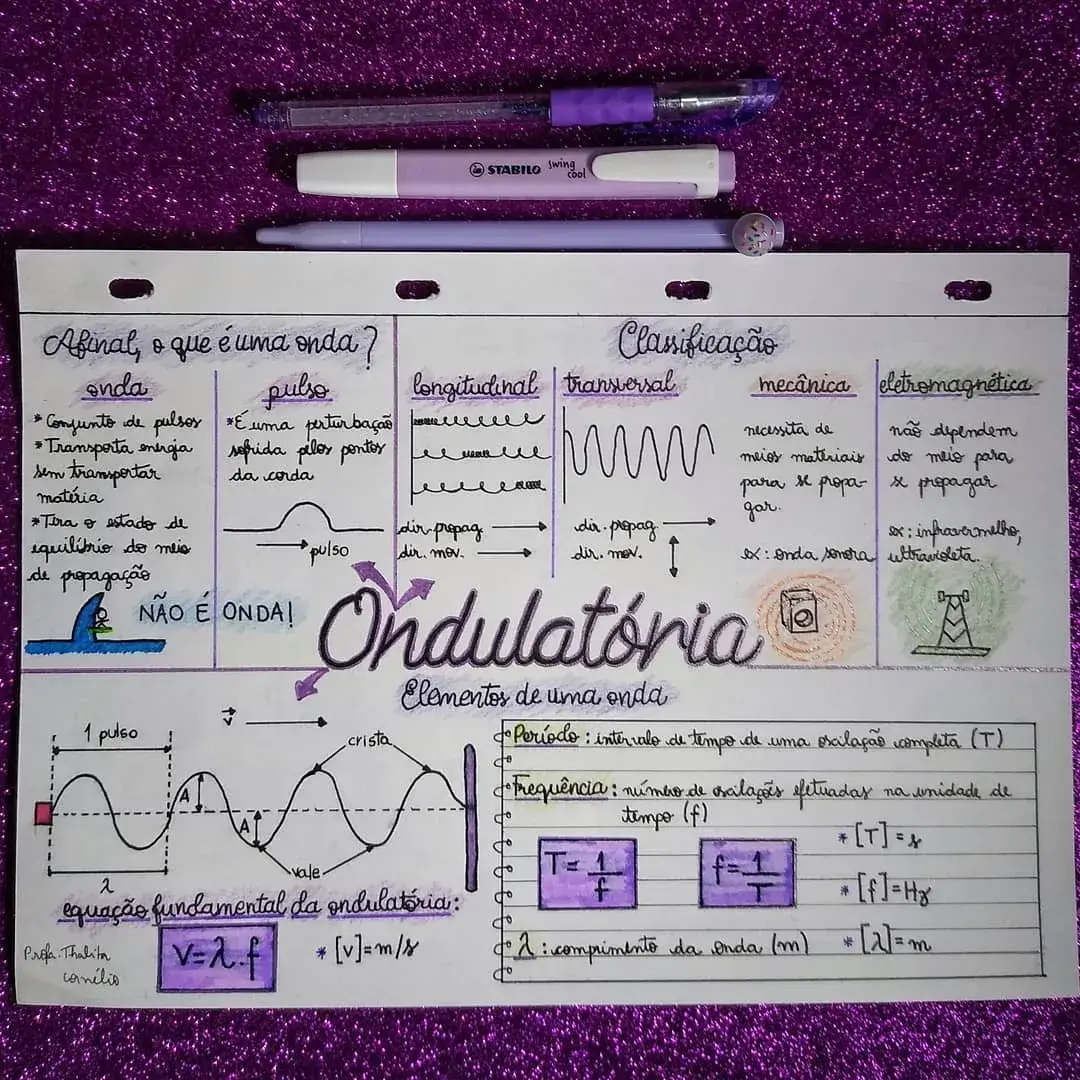 STABILO swing cool
Afinal, o que é uma onda?
onda
* Conjunto de pulsos
* Transporta energia
sem transportar
matéria
* Tira o estado de
equilíbrio do meio
de propagação
NÃO É ONDA!
pulso
* É uma perturbação
sofrida pelos pontos
da corda
pulso
Classificação
longitudinal
dir. propag
dir. mov.
transversal
dir. propag
dir. mov.
mecânica
necessita de
meios materiais
para se propa-
gar.
ex: onda sonora
eletromagnética
não dependem
do meio para
se propagar
ex: infravermelho,
ultravioleta.
Ondulatória
Elementos de uma onda
v
1 pulso
crista
A
A
vale
λ
equação fundamental da ondulatória:
V=λ.f
* [v]=m/s
Profa. Thalita
Cornélio
Período: intervalo de tempo de uma oscilação completa (T)
Frequência: número de oscilações efetuadas na unidade de
tempo (f)
T=1/f
f=1/T
* [T]=s
* [f]=Hz
λ: comprimento da onda (m)
* [λ]=m